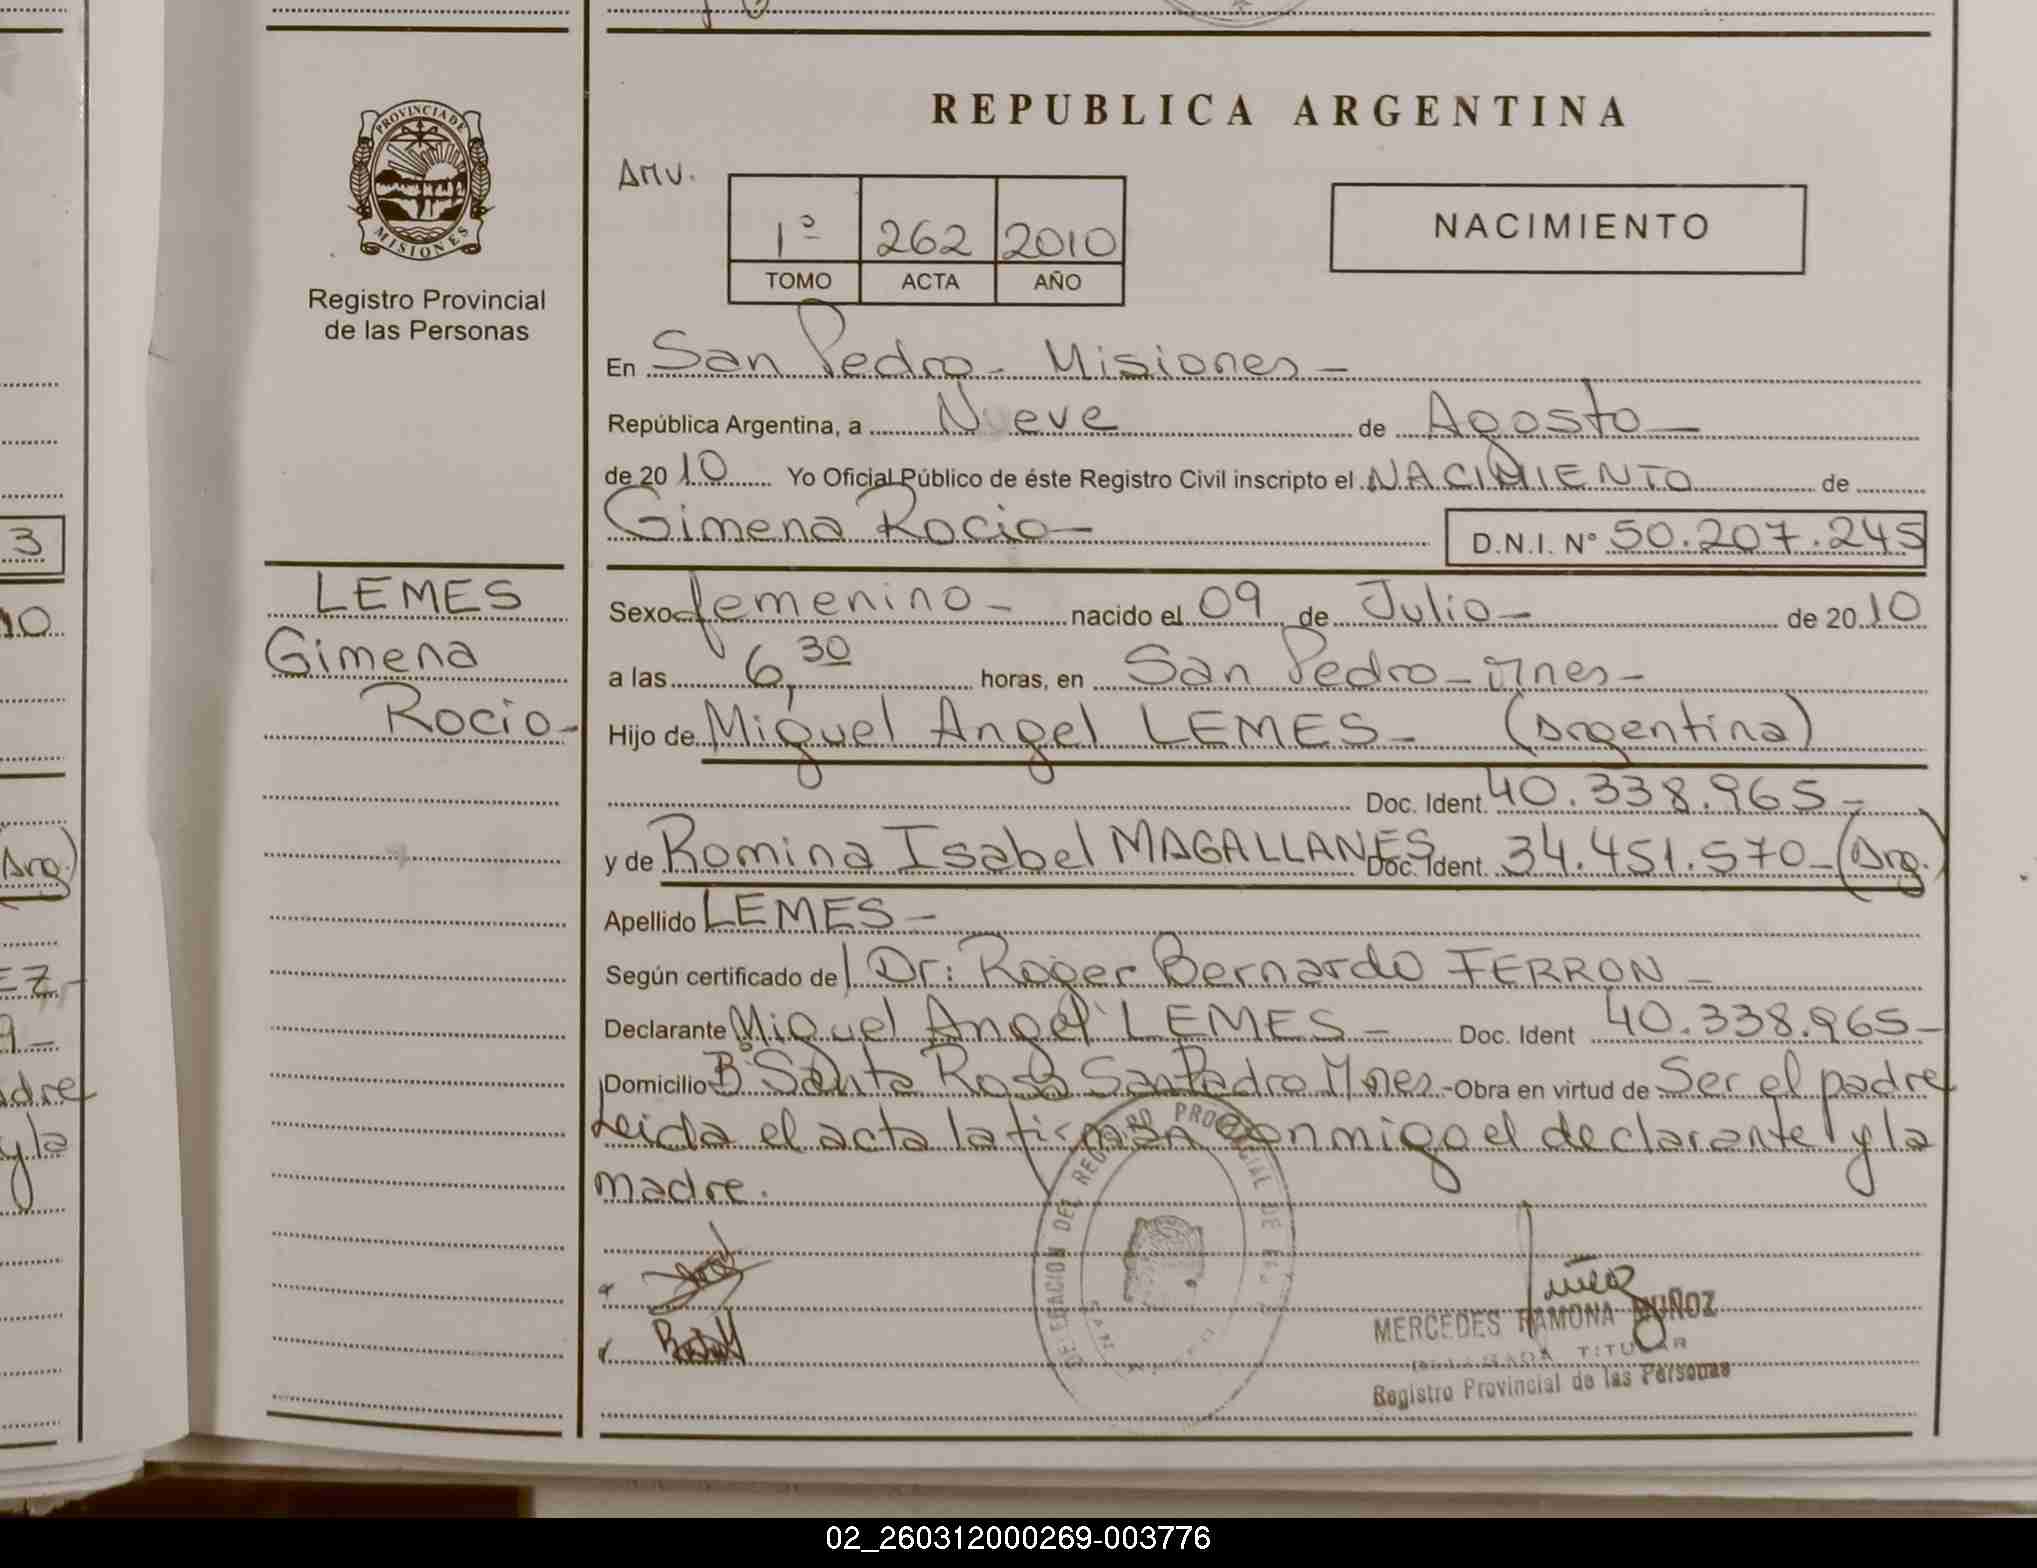 REPUBLICA ARGENTINA
PROVINCIA DE
MISIONES
Registro Provincial
de las Personas
AMV.
1º 262 2010
TOMO ACTA AÑO
NACIMIENTO
En San Pedro - Misiones -
República Argentina, a Nueve de Agosto -
de 20 10 Yo Oficial Público de éste Registro Civil inscripto el NACIMIENTO de
Gimena Rocio - D.N.I. Nº 50.207.245
LEMES
Gimena
Rocio -
Sexo femenino - nacido el 09 de Julio - de 20 10
a las 6,30 horas, en San Pedro - Mnes -
Hijo de Miguel Angel LEMES - (Argentina)
Doc. Ident. 40.338.965 -
y de Romina Isabel MAGALLANES Doc. Ident. 34.451.570 - (Arg.)
Apellido LEMES -
Según certificado de Dr: Roger Bernardo FERRON -
Declarante Miguel Angel LEMES - Doc. Ident 40.338.965 -
Domicilio Bº Santa Rosa San Pedro Mnes - Obra en virtud de Ser el padre
Leida el acta la firman conmigo el declarante y la
madre.
DELEGACION DEL REGISTRO PROVINCIAL DE
MERCEDES RAMONA MUÑOZ
TITULAR
Registro Provincial de las Personas
3
10
Arg)
EZ -
9 -
adre
y la
02_260312000269-003776